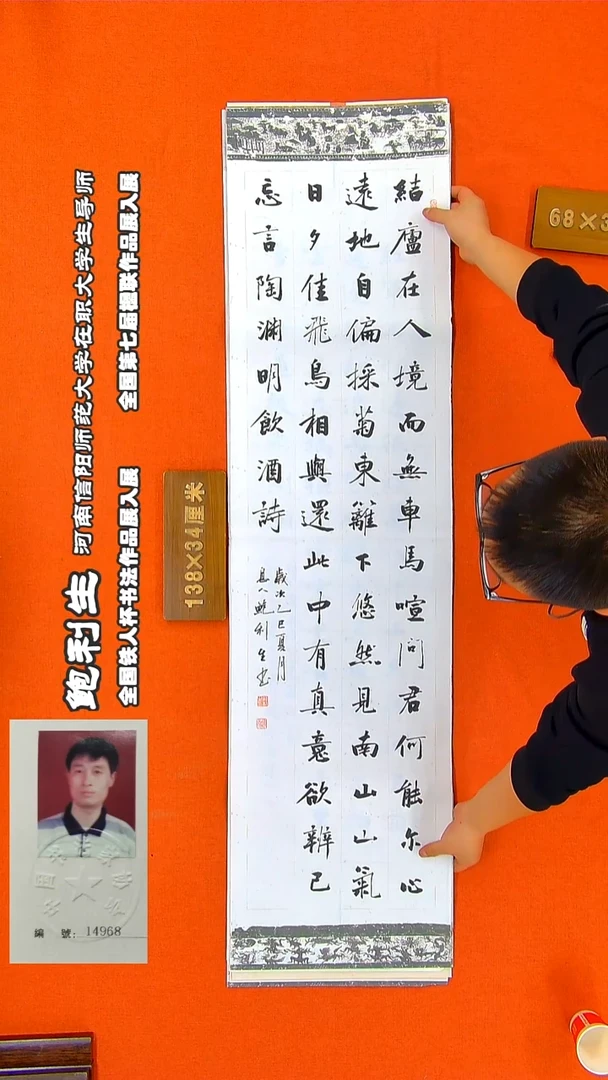 結廬在人境而無車馬喧問君何能尓心
遠地自偏採菊東籬下悠然見南山山氣
日夕佳飛鳥相與還此中有真意欲辨已
忘言陶淵明飲酒詩
歲次乙巳夏月
息人鮑利生書
138×34厘米
68×3
鲍利生 河南信阳师范大学在职大学生导师
全国铁人杯书法作品展入展 全国第七届楹联作品展入展
編 號：14968